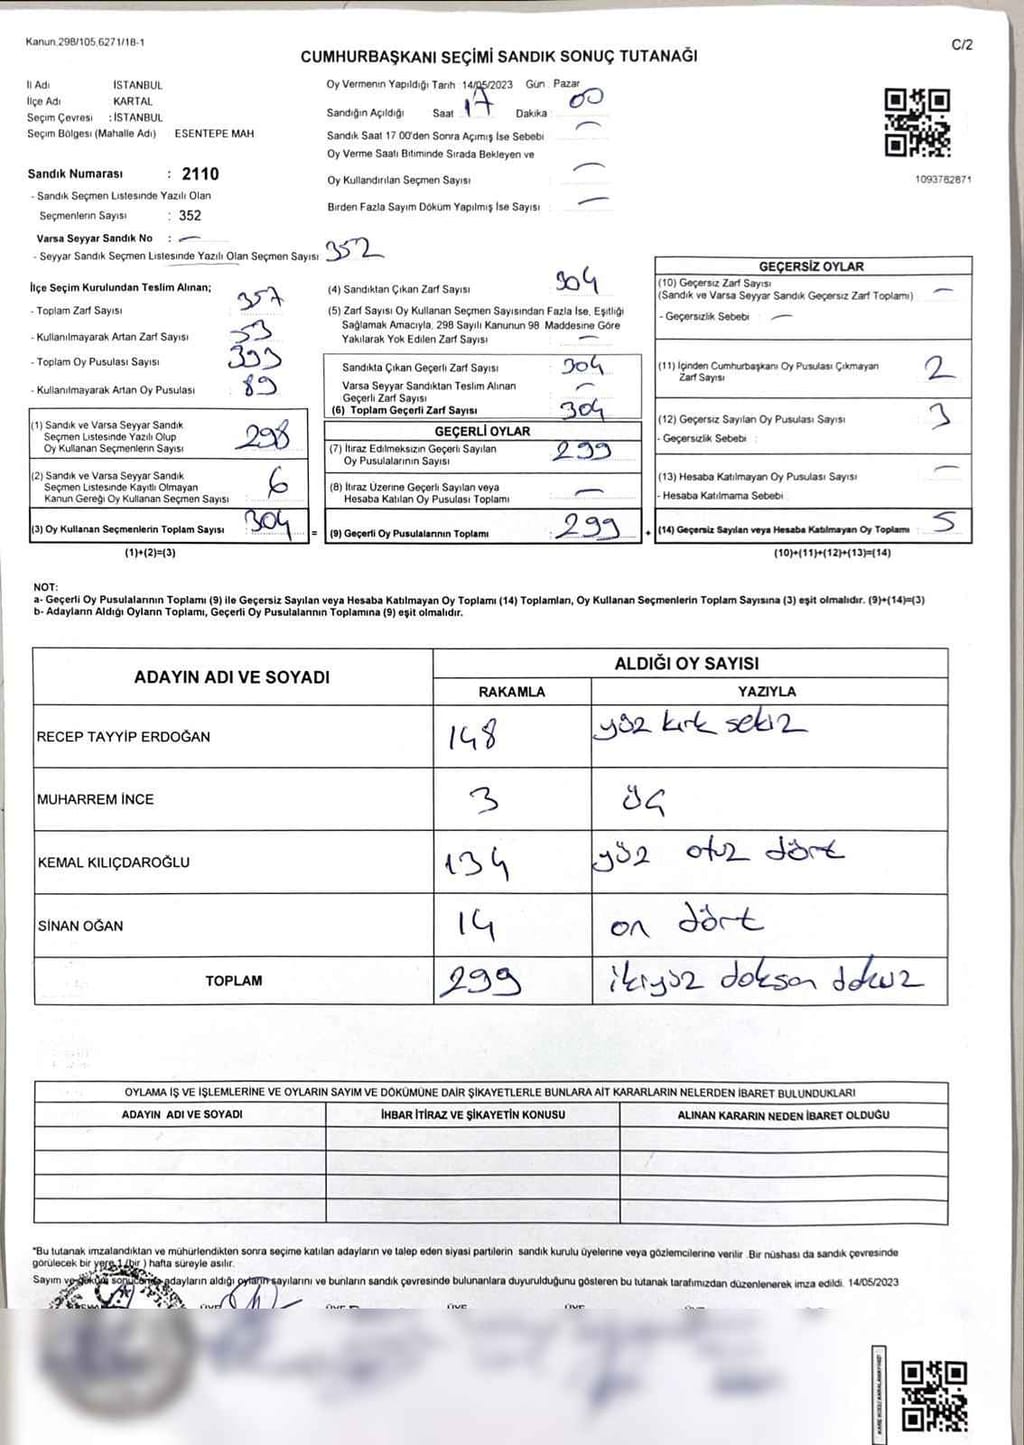 Kanun.298/105,6271/18-1
C/2
CUMHURBAŞKANI SEÇİMİ SANDIK SONUÇ TUTANAĞI
İl Adı İSTANBUL
İlçe Adı KARTAL
Seçim Çevresi : İSTANBUL
Seçim Bölgesi (Mahalle Adı) ESENTEPE MAH
Sandık Numarası : 2110
- Sandık Seçmen Listesinde Yazılı Olan
Seçmenlerin Sayısı : 352
Varsa Seyyar Sandık No : —
- Seyyar Sandık Seçmen Listesinde Yazılı Olan Seçmen Sayısı 352
Oy Vermenin Yapıldığı Tarih : 14/05/2023 Gün : Pazar
Sandığın Açıldığı Saat 17 Dakika : 00
Sandık Saat 17 00'den Sonra Açımış İse Sebebi —
Oy Verme Saati Bitiminde Sırada Bekleyen ve
Oy Kullandırılan Seçmen Sayısı —
Birden Fazla Sayım Döküm Yapılmış İse Sayısı —
1093762871
İlçe Seçim Kurulundan Teslim Alınan;
- Toplam Zarf Sayısı 357
- Kullanılmayarak Artan Zarf Sayısı 53
- Toplam Oy Pusulası Sayısı 393
- Kullanılmayarak Artan Oy Pusulası 89
(1) Sandık ve Varsa Seyyar Sandık
Seçmen Listesinde Yazılı Olup
Oy Kullanan Seçmenlerin Sayısı 298
(2) Sandık ve Varsa Seyyar Sandık
Seçmen Listesinde Kayıtlı Olmayan
Kanun Gereği Oy Kullanan Seçmen Sayısı 6
(3) Oy Kullanan Seçmenlerin Toplam Sayısı 304 =
(1)+(2)=(3)
(4) Sandıktan Çıkan Zarf Sayısı 304
(5) Zarf Sayısı Oy Kullanan Seçmen Sayısından Fazla İse, Eşitliği
Sağlamak Amacıyla, 298 Sayılı Kanunun 98 Maddesine Göre
Yakılarak Yok Edilen Zarf Sayısı —
Sandıkta Çıkan Geçerli Zarf Sayısı 304
Varsa Seyyar Sandıktan Teslim Alınan
Geçerli Zarf Sayısı —
(6) Toplam Geçerli Zarf Sayısı 304
GEÇERLİ OYLAR
(7) İtiraz Edilmeksizin Geçerli Sayılan
Oy Pusulalarının Sayısı 299
(8) İtiraz Üzerine Geçerli Sayılan veya
Hesaba Katılan Oy Pusulası Toplamı —
(9) Geçerli Oy Pusulalarının Toplamı 299 +
GEÇERSİZ OYLAR
(10) Geçersiz Zarf Sayısı
(Sandık ve Varsa Seyyar Sandık Geçersiz Zarf Toplamı) —
- Geçersizlik Sebebi : —
(11) İçinden Cumhurbaşkanı Oy Pusulası Çıkmayan
Zarf Sayısı 2
(12) Geçersiz Sayılan Oy Pusulası Sayısı 3
- Geçersizlik Sebebi :
(13) Hesaba Katılmayan Oy Pusulası Sayısı —
- Hesaba Katılmama Sebebi
(14) Geçersiz Sayılan veya Hesaba Katılmayan Oy Toplamı 5
(10)+(11)+(12)+(13)=(14)
NOT:
a- Geçerli Oy Pusulalarının Toplamı (9) ile Geçersiz Sayılan veya Hesaba Katılmayan Oy Toplamı (14) Toplamları, Oy Kullanan Seçmenlerin Toplam Sayısına (3) eşit olmalıdır. (9)+(14)=(3)
b- Adayların Aldığı Oyların Toplamı, Geçerli Oy Pusulalarının Toplamına (9) eşit olmalıdır.
ADAYIN ADI VE SOYADI ALDIĞI OY SAYISI
RAKAMLA YAZIYLA
RECEP TAYYİP ERDOĞAN 148 yüz kırk sekiz
MUHARREM İNCE 3 üç
KEMAL KILIÇDAROĞLU 134 yüz otuz dört
SİNAN OĞAN 14 on dört
TOPLAM 299 ikiyüz doksan dokuz
OYLAMA İŞ VE İŞLEMLERİNE VE OYLARIN SAYIM VE DÖKÜMÜNE DAİR ŞİKAYETLERLE BUNLARA AİT KARARLARIN NELERDEN İBARET BULUNDUKLARI
ADAYIN ADI VE SOYADI İHBAR İTİRAZ VE ŞİKAYETİN KONUSU ALINAN KARARIN NEDEN İBARET OLDUĞU
*Bu tutanak imzalandıktan ve mühürlendikten sonra seçime katılan adayların ve talep eden siyasi partilerin sandık kurulu üyelerine veya gözlemcilerine verilir .Bir nüshası da sandık çevresinde
görülecek bir yere 1 (bir ) hafta süreyle asılır.
Sayım ve döküm sonucunda adayların aldığı oyların sayılarını ve bunların sandık çevresinde bulunanlara duyurulduğunu gösteren bu tutanak tarafımızdan düzenlenerek imza edildi. 14/05/2023